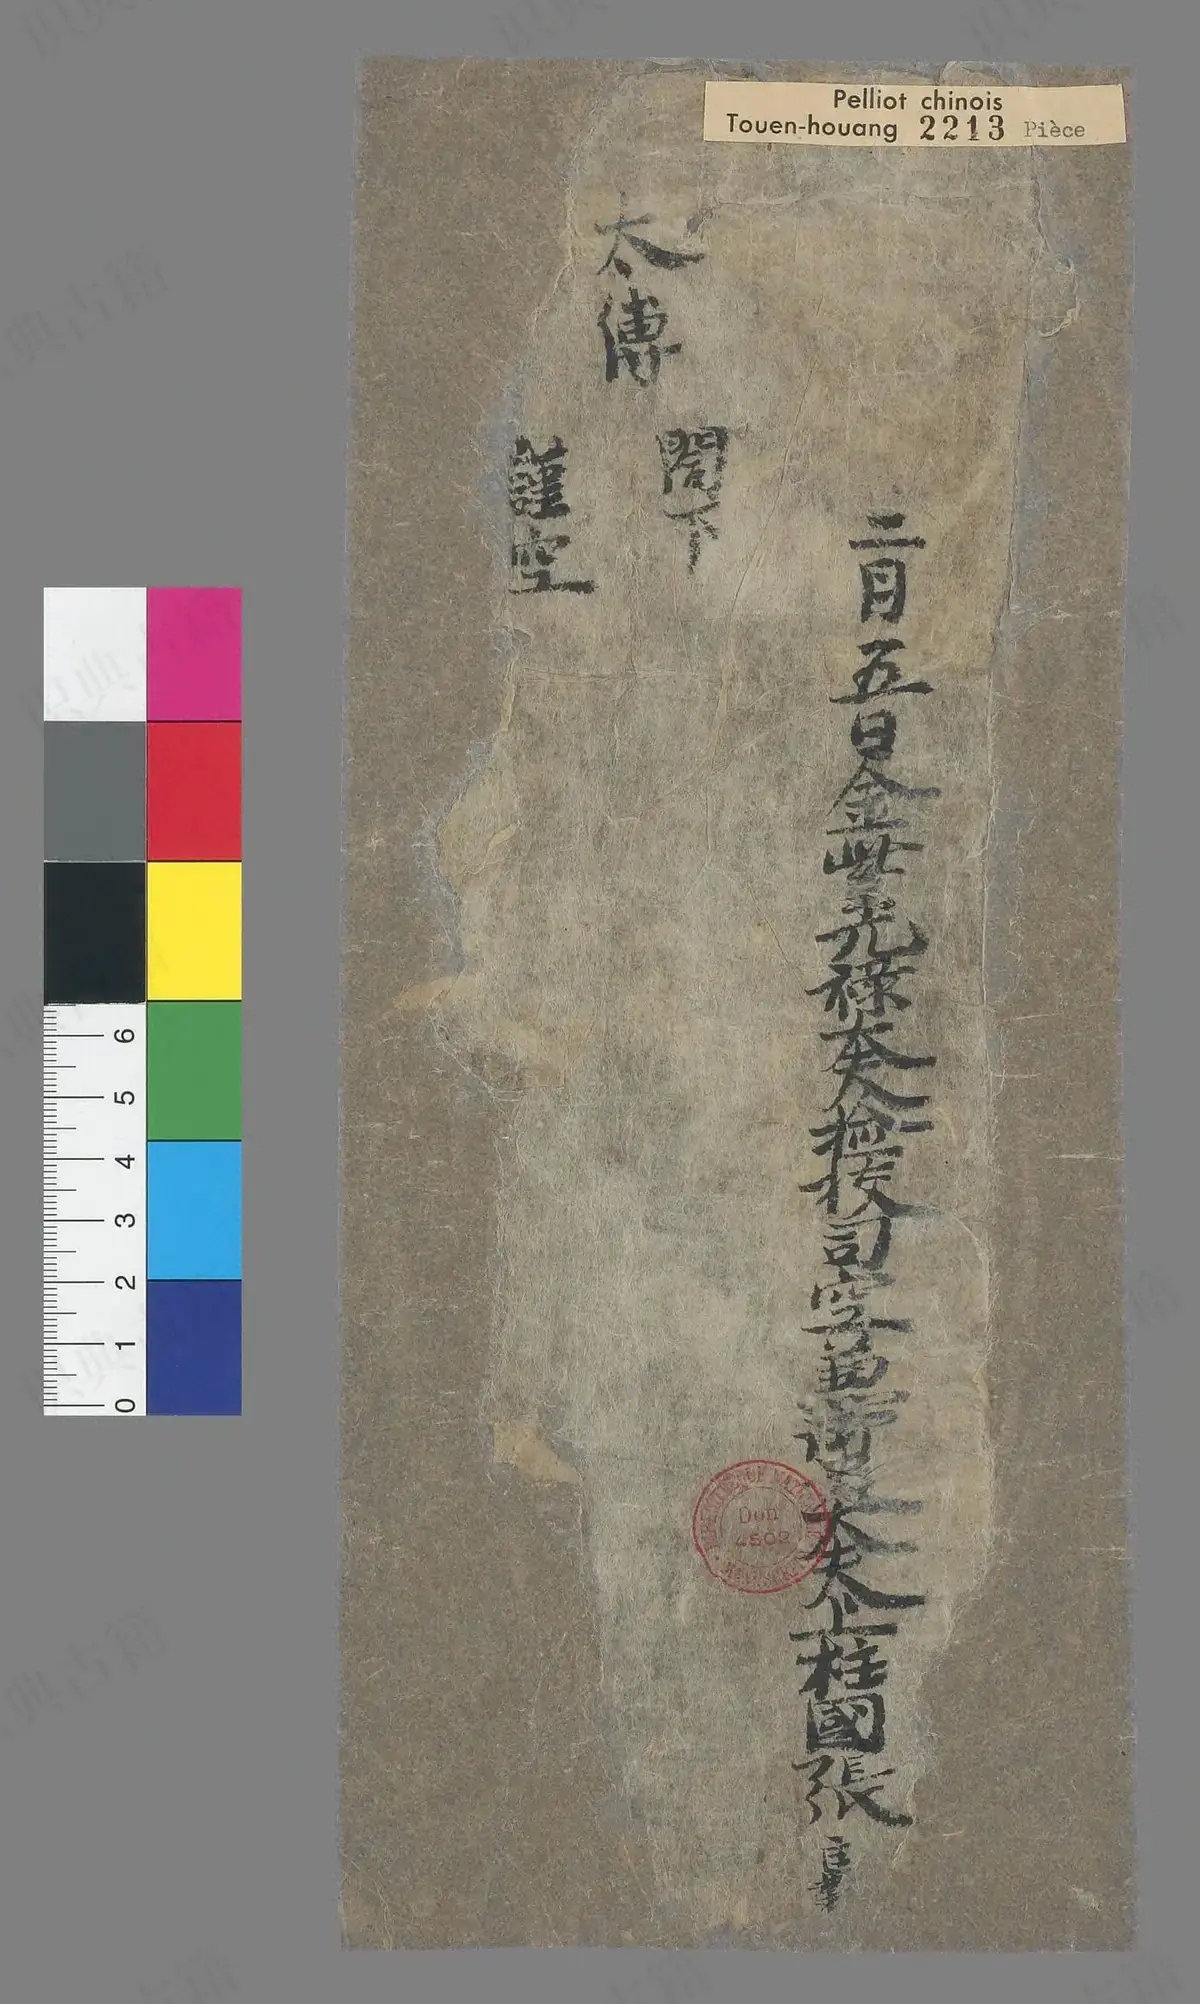 Pelliot chinois
Touen-houang 2213 Pièce
二月五日金紫光祿大夫檢校司空兼御史大夫上柱國張
閤下
太傅
謹空
Don 4502
6
5
4
3
2
1
0